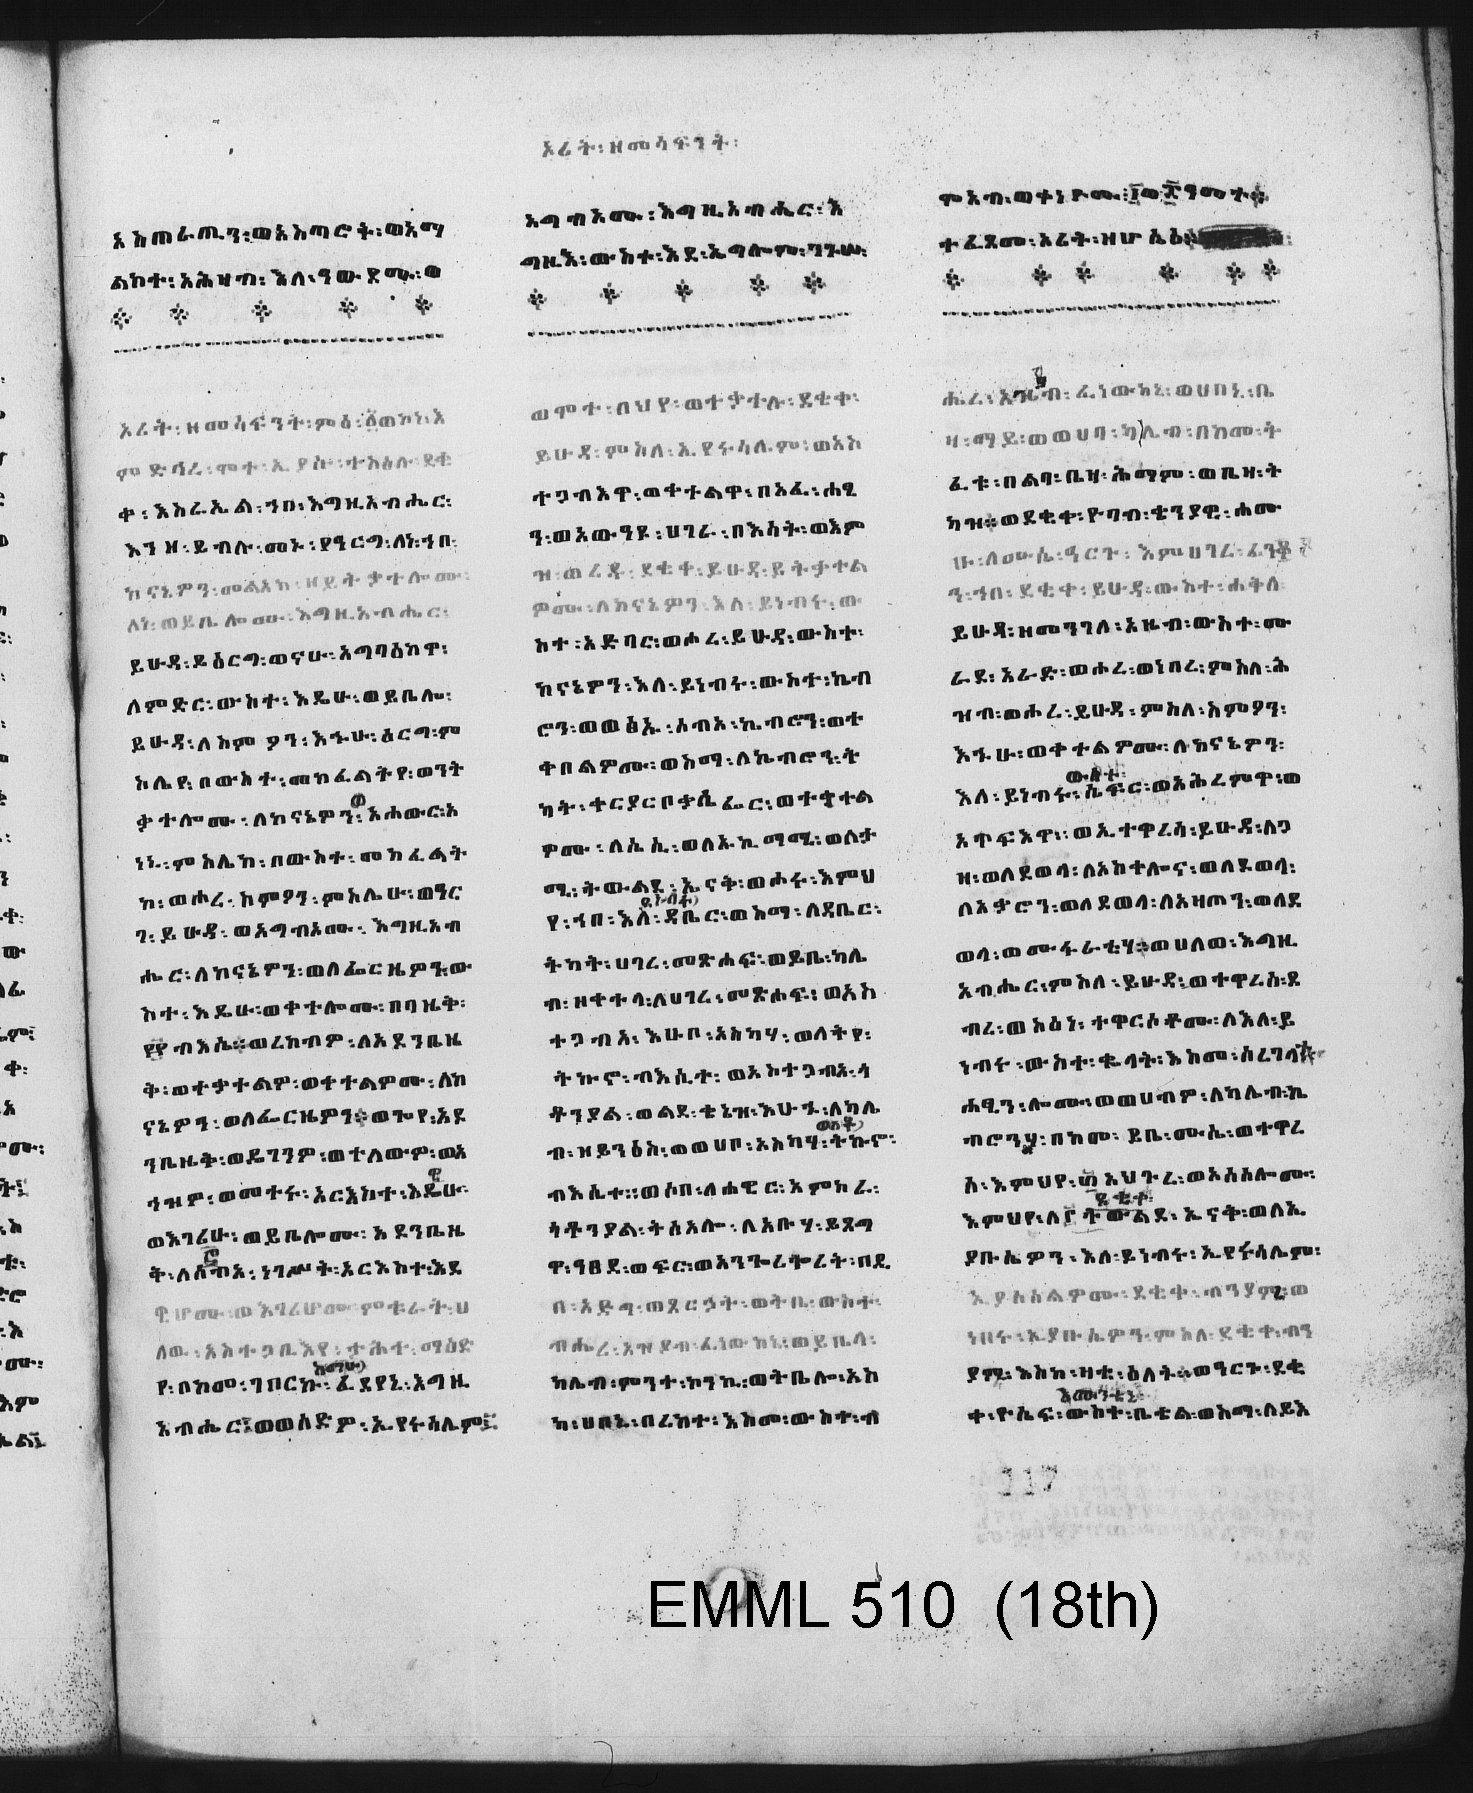 ኦሪት፡ዘመሳፍንት፡
አስጠራጢን፡ወአስጣሮት፡ወአማ
ልክተ፡አሕዛብ፡እለ፡ዓውዶሙ፡ወ
አግብኦሙ፡እግዚአብሔር፡እ
ግዚእ፡ውስተ፡እደ፡ኤግሎም፡ንጉሠ፡
ሞአብ፡ወቀነዮሙ፡፲ወ፰ዓመተ።
ተፈጸመ፡ኦሪት፡ዘሆሴዕ።
ኦሪት፡ዘመሳፍንት፡ምዕ፡፩ወኮነ፡እ
ምድኅረ፡ሞተ፡ኢያሱ፡ተስእሉ፡ደቂ
ቀ፡እስራኤል፡ኀበ፡እግዚአብሔር፡
እንዘ፡ይብሉ፡መኑ፡የዓርግ፡ለነ፡ኀበ፡
ከናኔዎን፡መልአከ፡ዘይትቃተሎሙ፡
ለነ፡ወይቤሎሙ፡እግዚአብሔር፡
ይሁዳ፡ይዕርግ፡ወናሁ፡አግባዕክዋ፡
ለምድር፡ውስተ፡እዴሁ፡ወይቤሎ፡
ይሁዳ፡ለስምዖን፡እኁሁ፡ዕርግ፡ም
ስሌየ፡በውስተ፡መክፈልትየ፡ወንት
ቃተሎሙ፡ለከናኔዎን፡ወአሐውር፡አ
ነኒ፡ምስሌከ፡በውስተ፡መክፈልት
ከ፡ወሖረ፡ስምዖን፡ምስሌሁ፡ወዓር
ገ፡ይሁዳ፡ወአግብኦሙ፡እግዚአብ
ሔር፡ለከናኔዎን፡ወለፌርዜዎን፡ው
ስተ፡እዴሁ፡ወቀተሎሙ፡በባዜቅ፡
፻፻ብእሴ።ወረከብዎ፡ለአደንቤዜ
ቅ፡ወተቃተልዎ፡ወቀተልዎሙ፡ለከ
ናኔዎን፡ወለፌርዜዎን።ወጐየ፡አደ
ንቤዜቅ፡ወዴገንዎ፡ወተለውዎ፡ወአ
ኀዝዎ፡ወመተሩ፡አርእስተ፡እደዊሁ፡
ወእገሪሁ፡ወይቤሎሙ፡አደንቤዜ
ቅ፡ለሰብአ፡ነገሥት፡አርእስተ፡እደ
ዊሆሙ፡ወእገሪሆሙ፡ምቱራት፡ሀ
ለዉ፡አስተጋቢእየ፡ታሕተ፡ማዕድ
ከማሁ
የ፡በከመ፡ገበርኩ፡ፈደየኒ፡እግዚ
አብሔር፡ወወሰድዎ፡ኢየሩሳሌም፡
ወሞተ፡በህየ፡ወተቃተሉ፡ደቂቀ፡
ይሁዳ፡ምስለ፡ኢየሩሳሌም፡ወአስ
ተጋብእዋ፡ወቀተልዋ፡በአፈ፡ሐፂ
ን፡ወአውዓዩ፡ሀገራ፡በእሳት፡ወእም
ዝ፡ወረዱ፡ደቂቀ፡ይሁዳ፡ይትቃተል
ዎሙ፡ለከናኔዎን፡እለ፡ይነብሩ፡ው
ስተ፡አድባር፡ወሖረ፡ይሁዳ፡ውስተ፡
ከናኔዎን፡እለ፡ይነብሩ፡ውስተ፡ኬብ
ሮን፡ወወፅኡ፡ሰብአ፡ኬብሮን፡ወተ
ቀበልዎሙ፡ወስማ፡ለኬብሮን፡ት
ወለት
ካት፡ቀርያርቦቃሴፌር፡ወተቃተል
ዎሙ፡ለሴሲ፡ወለአኪማሚ፡ወለታ
ሚ፡ትውልደ፡ኤናቅ፡ወሖሩ፡እምህ
የ፡ኀበ፡እለ፡ዳቤር፡ወስማ፡ለዳቤር፡
ትካት፡ሀገረ፡መጽሐፍ፡ወይቤ፡ካሌ
ብ፡ዘቀተላ፡ለሀገረ፡መጽሐፍ፡ወአስ
ተጋብአ፡እሁቦ፡አስካሃ፡ወለትየ፡
ትኩኖ፡ብእሲተ፡ወአስተጋብአ፡ጎ
ቶንያል፡ወልደ፡ቄኔዝ፡እሁኁ፡ለካሌ
ብ፡ዘይንዕስ፡ወወሀቦ፡አስካሃ፡ትኩኖ፡
ብእሲተ፡፡ወሶበ፡ለሐዊር፡አምከራ፡
ጎቶንያል፡ትስአሎ፡ለአቡሃ፡ይጸግ
ዋ፡ዓፀደ፡ወፍር፡ወአንጐረጐረት፡በዲ
በ፡አድግ፡ወጸርኃት፡ወትቤ፡ውስተ፡
ብሔረ፡አዜብ፡ፈነውከኒ፡ወይቤላ፡
ካሌብ፡ምንተ፡ኮንኪ፡ወትቤሎ፡አስ
ካ፡ሀበኒ፡በረከተ፡እስመ፡ውስተ፡ብ
ሔረ፡አዜብ፡ፈነውከኒ፡ወሀበኒ፡ቤ
ዛ፡ማይ፡ወወሀባ፡ካሌብ፡በከመ፡ት
ፈቱ፡በልባ፡ቤዛ፡ሕማም፡ወቤዛ፡ት
ካዝ።ወደቂቀ፡ዮባብ፡ቄንያዊ፡ሐሙ
ሁ፡ለሙሴ፡ዓርጉ፡እምሀገረ፡ፊንቆ
ን፡ኀበ፡ደቂቀ፡ይሁዳ፡ውስተ፡ሐቅለ፡
ይሁዳ፡ዘመንገለ፡አዜብ፡ውስተ፡ሙ
ራደ፡አራድ፡ወሖረ፡ወነበረ፡ምስለ፡ሕ
ዝብ፡ወሖረ፡ይሁዳ፡ምስለ፡ስምዖን፡
እኁሁ፡ወቀተልዎሙ፡ለከናኔዎን፡
ውስተ፡
እለ፡ይነብሩ፡ሴፍር፡ወአሕረምዋ፡ወ
አጥፍእዋ፡፡ወኢተዋረሳ፡ይሁዳ፡ለጋ
ዛ፡ወለደወላ፡ለአስቀሎና፡ወለደወላ፡
ለአቃሮን፡ወለደወላ፡ለአዛጦን፡ወለደ
ወላ፡ወሙፋራቲሃ።ወሀለወ፡እግዚ
አብሔር፡ምስለ፡ይሁዳ፡ወተዋረሰ፡ደ
ብረ፡ወስዕነ፡ተዋርሶቶሙ፡ለእለ፡ይ
ነብሩ፡ውስተ፡ቈላት፡እስመ፡ሰረገላተ
ሐፂን፡ሎሙ፡ወወሀብዎ፡ለካሌብ፡ኬ
ብሮንሃ፡በከመ፡ይቤ፡ሙሴ፡ወተዋረ
ሰ፡እምህየ፡፫አህጉረ፡ወአሰሰሎሙ፡
ደቂቀ፡
እምህየ፡ለ፫ትውልደ፡ኤናቅ፡ወለኢ
ያቡሴዎን፡እለ፡ይነብሩ፡ኢየሩሳሌም፡
ኢያሰስልዎሙ፡ደቂቀ፡ብንያሚ፡ወ
ነበሩ፡ኢያቡሴዎን፡ምስለ፡ደቂቀ፡ብን
ያሚ፡እስከ፡ዛቲ፡ዕለት።ወዓርጉ፡ደቂ
እሙንቱኒ፡
ቀ፡ዮሴፍ፡ውስተ፡ቤቴል፡ወስማ፡ለይእ
117
EMML 510 (18th)